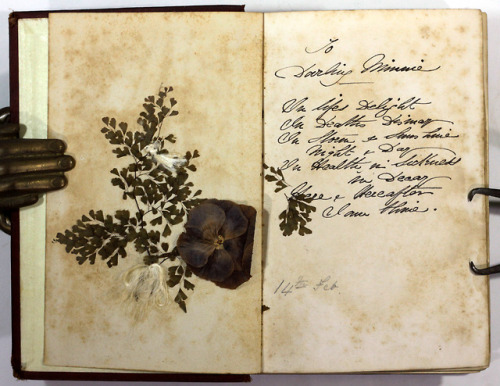 To
Darling Minnie
In lifes Delight
In Deaths Dismay
In Storm & Sunshine
Night & Day
In Health in Sickness
in Decay
Here & Hereafter
I am thine.
14th Feb.